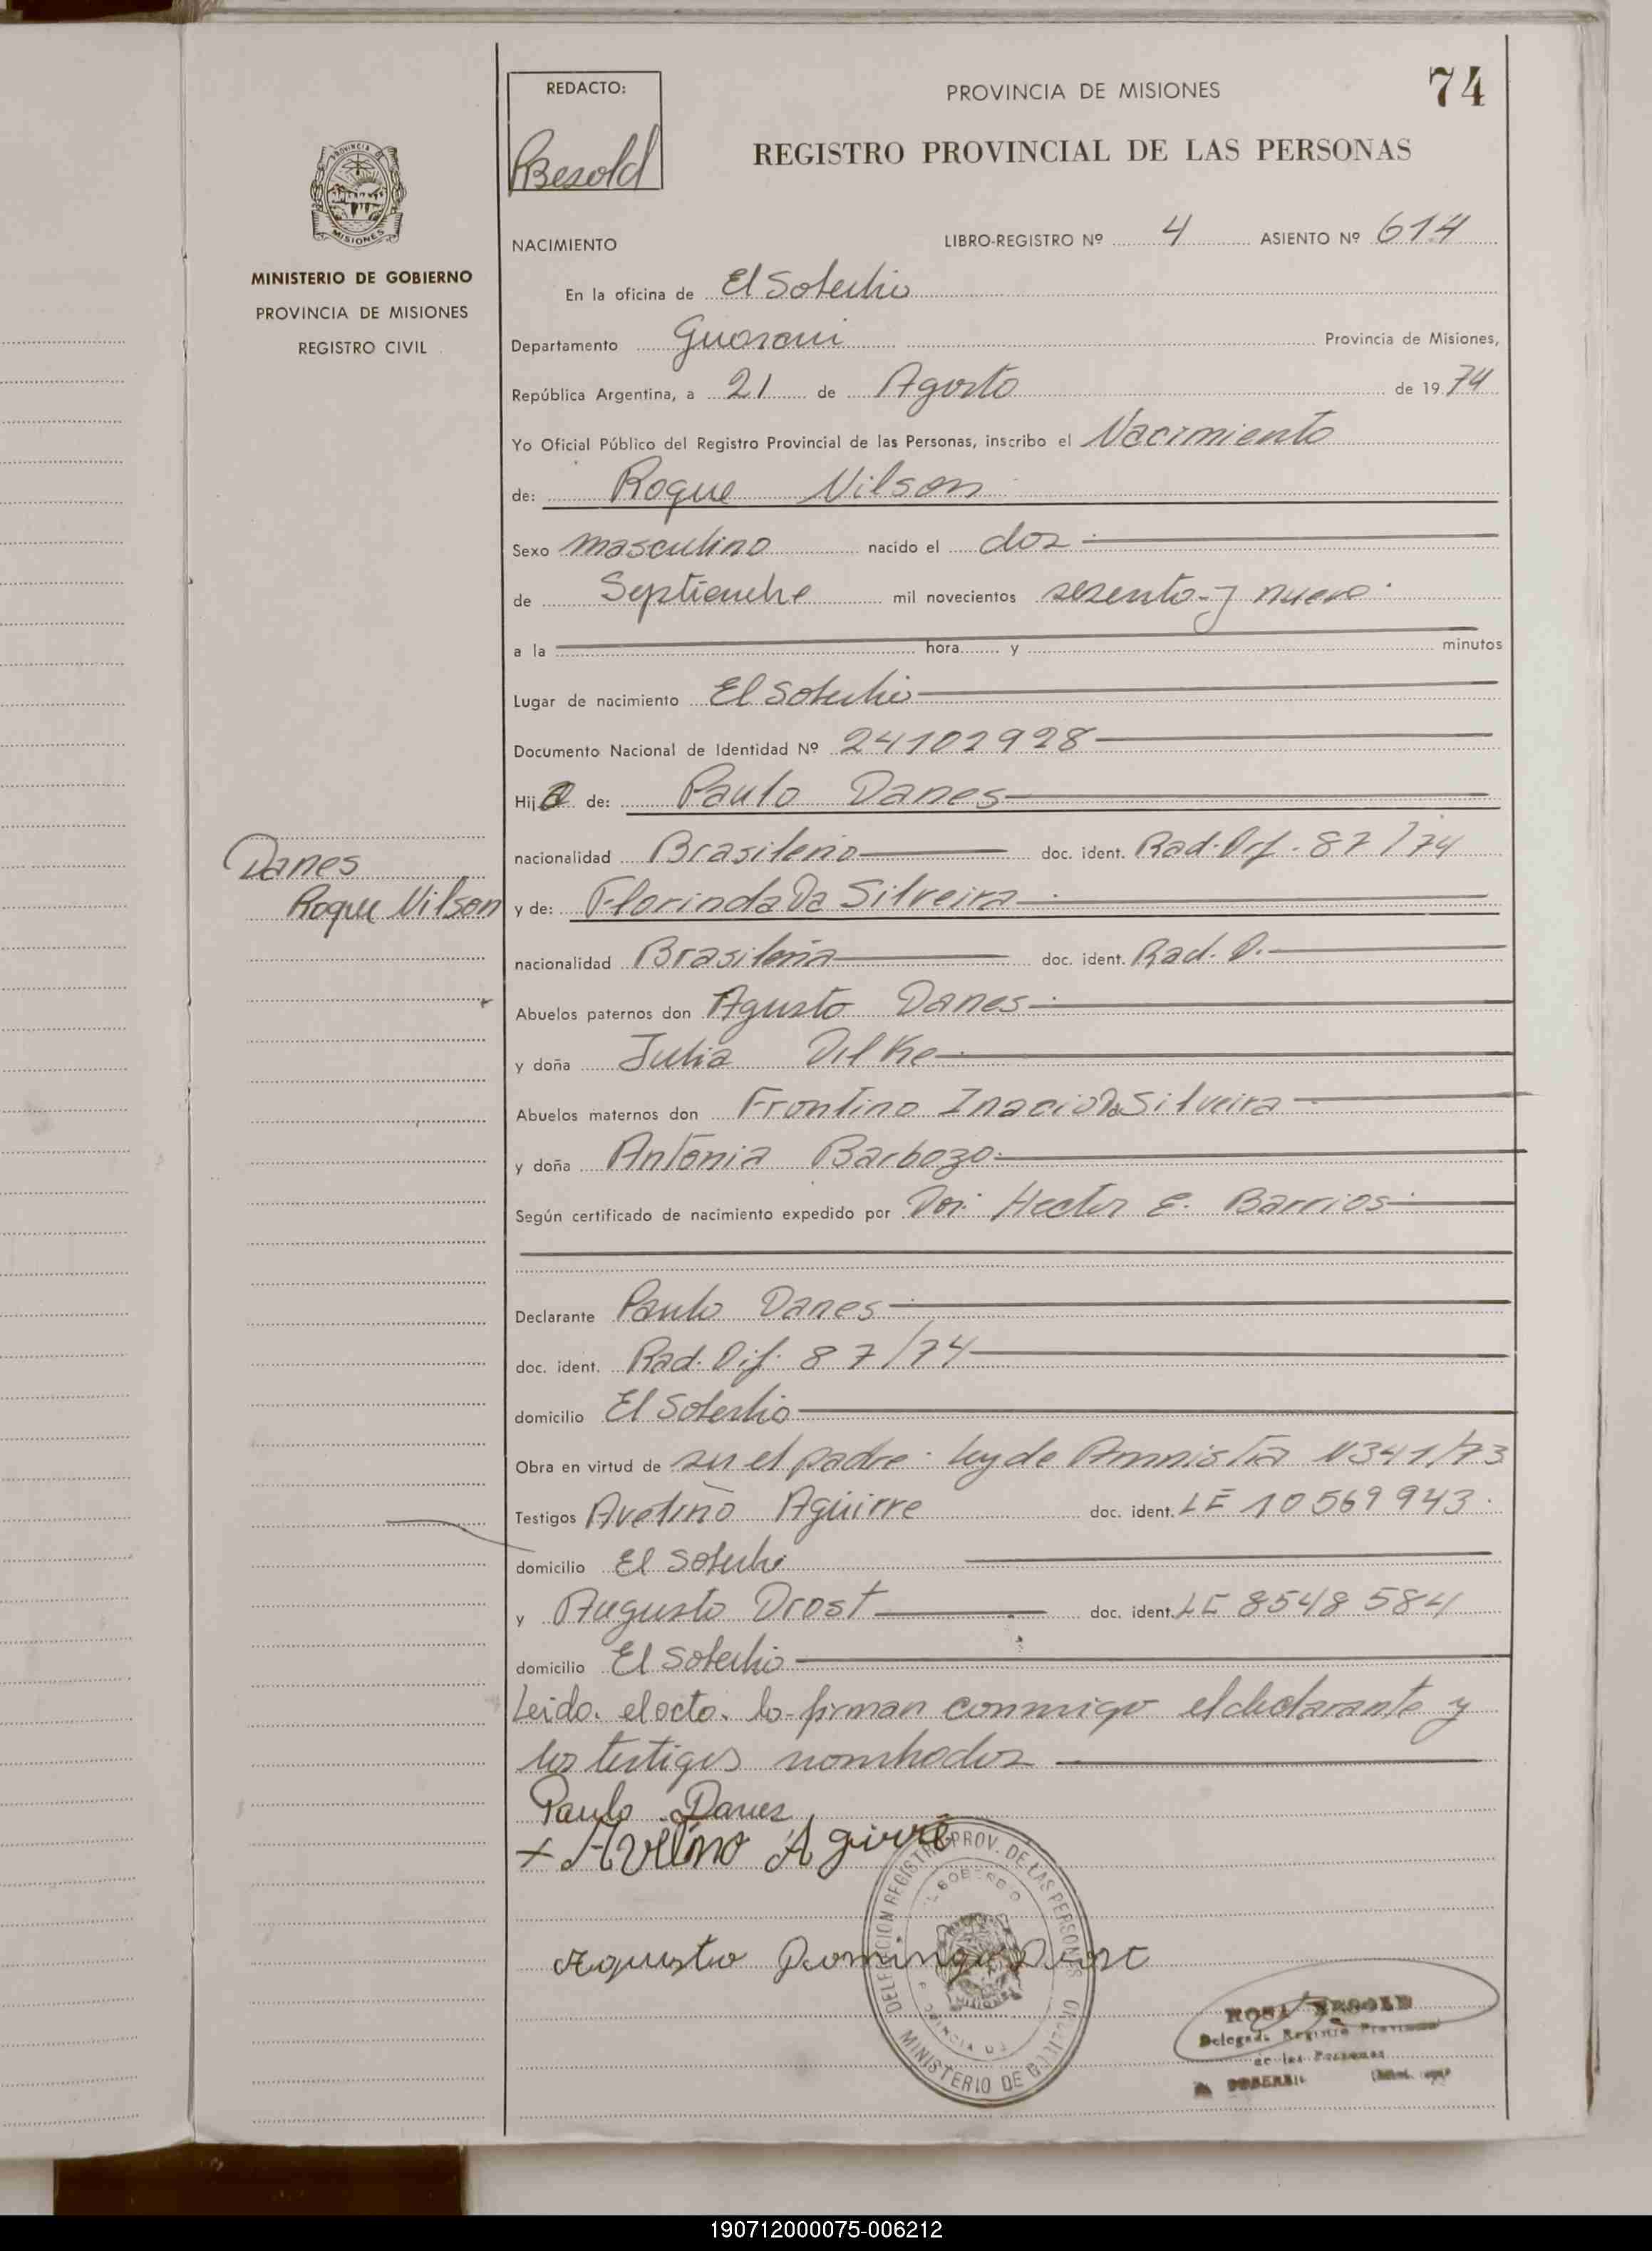 74
REDACTO:
Besold
PROVINCIA DE MISIONES
REGISTRO PROVINCIAL DE LAS PERSONAS
PROVINCIA DE
MISIONES
MINISTERIO DE GOBIERNO
PROVINCIA DE MISIONES
REGISTRO CIVIL
NACIMIENTO
LIBRO-REGISTRO Nº 4 ASIENTO Nº 614
En la oficina de El Soberbio
Departamento Guarani Provincia de Misiones,
República Argentina, a 21 de Agosto de 1974
Yo Oficial Público del Registro Provincial de las Personas, inscribo el Nacimiento
de: Roque Nilson
Sexo masculino nacido el dos
de Septiembre mil novecientos sesenta y nueve
a la hora y minutos
Lugar de nacimiento El Soberbio
Documento Nacional de Identidad Nº 24102928
Hijo de: Paulo Danes
nacionalidad Brasileño doc. ident. Rad. Dif. 87/74
Danes
Roque Nilson
y de: Florinda Da Silveira
nacionalidad Brasileña doc. ident. Rad. D.
Abuelos paternos don Agusto Danes
y doña Julia Dilke
Abuelos maternos don Frontino Inacio Da Silveira
y doña Antonia Barbozo
Según certificado de nacimiento expedido por Dor. Hector E. Barrios
Declarante Paulo Danes
doc. ident. Rad. Dif. 87/74
domicilio El Soberbio
Obra en virtud de ser el padre. Ley de Amnistia 1341/73
Testigos Avelino Aguirre doc. ident. LE 10569943
domicilio El Soberbio
y Augusto Drost doc. ident. LE 8548584
domicilio El Soberbio
Leido el acto. lo firman conmigo el declarante y
los testigos nombrados
Paulo Danes
+ Avelino Agirre
DELEGACION REGISTRO PROV. DE LAS PERSONAS
MINISTERIO DE GOBIERNO
EL SOBERBIO
PROVINCIA DE
MISIONES
Agusto Domingo Drost
ROSA BESOLD
Delegada Registro Provincial
de las Personas
EL SOBERBIO
190712000075-006212